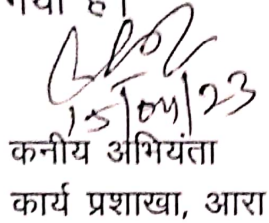 गया है।
15/04/23
कनीय अभियंता
कार्य प्रशाखा, आरा